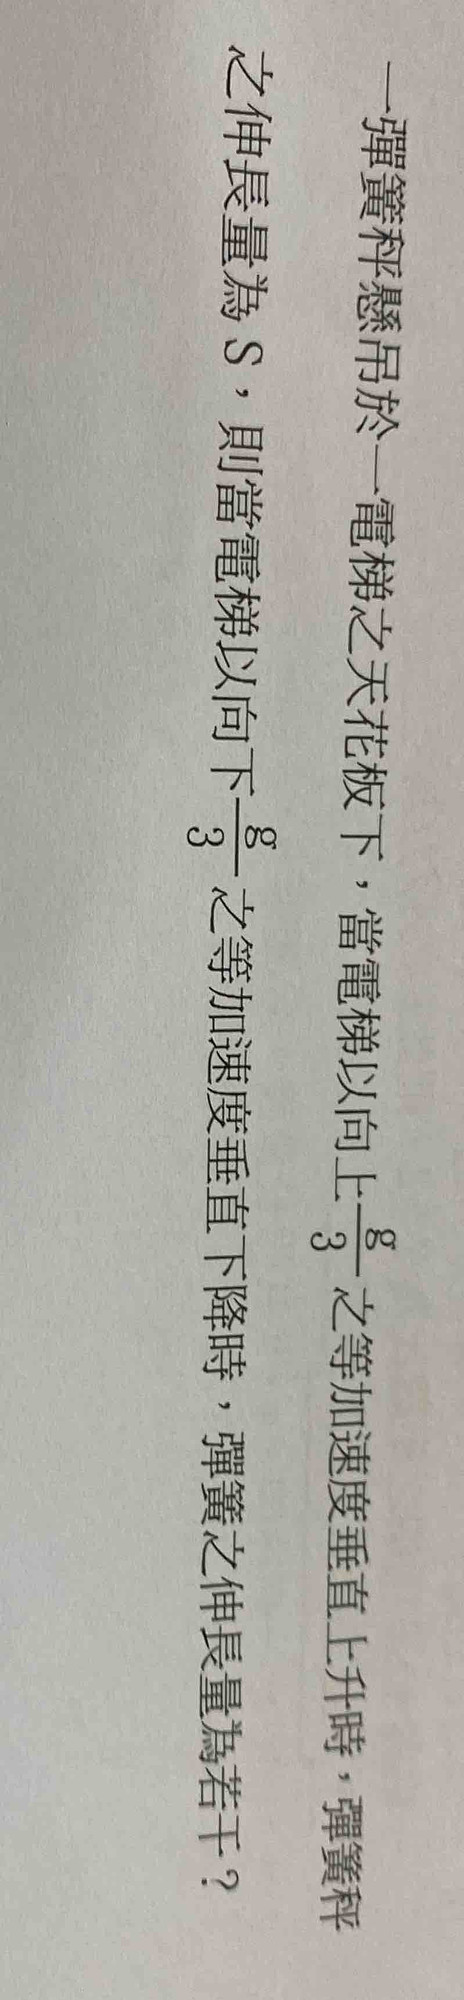 一彈簧秤懸吊於一電梯之天花板下，當電梯以向上 g/3 之等加速度垂直上升時，彈簧秤
之伸長量為 S，則當電梯以向下 g/3 之等加速度垂直下降時，彈簧之伸長量為若干？